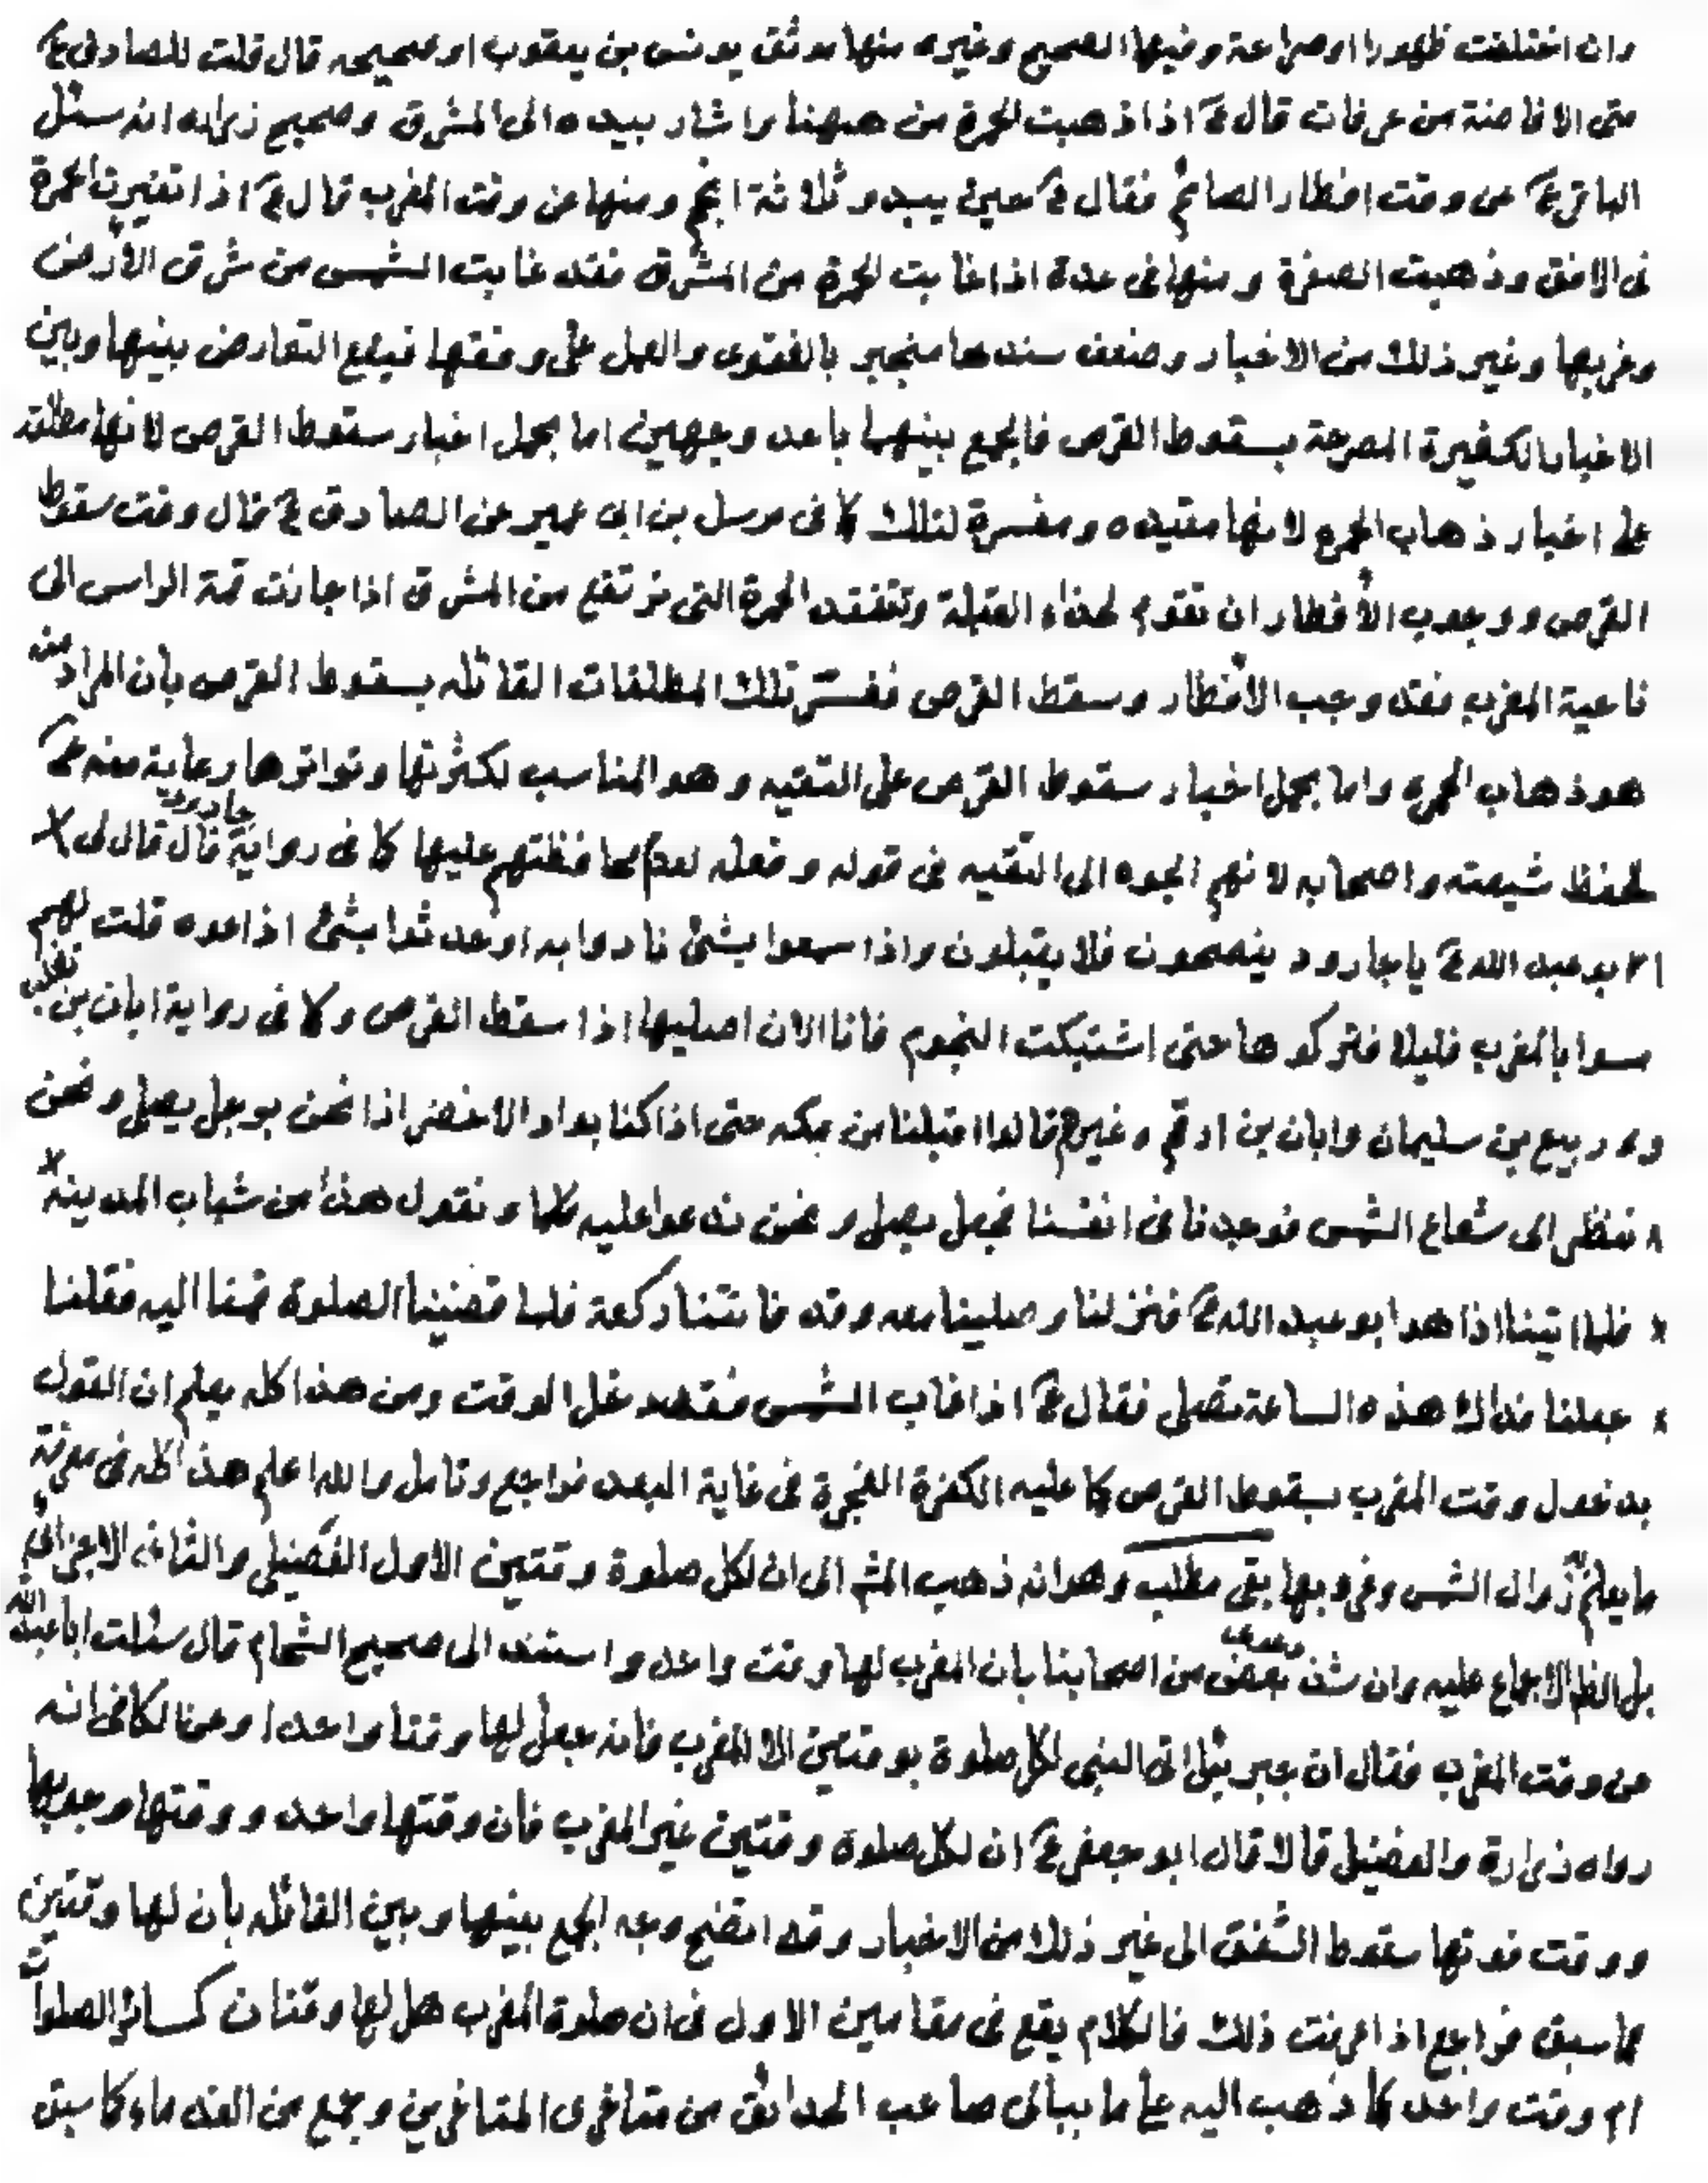 وان اختلفت ظهورا او صراحة وفيها الصحيح وغيره منها موثق يونس بن يعقوب او صحيحه قال قلت للصادق ع
متى الافاضة من عرفات قال ع اذا ذهبت الحمرة من هيهنا واشار بيده الى المشرق وصحيح زراره انه سئل
الباقر ع عن وقت افطار الصائم فقال ع حين يبدو ثلاثة انجم ومنها عن وقت المغرب قال ع اذا تغيرت الحمرة
فى الافق وذهبت الصفرة ومنها فى عدة اذا غابت الحمرة من المشرق فقد غابت الشمس من شرق الأرض
وغربها وغير ذلك من الاخبار وضعف سندها منجبر بالفتوى والعمل على وفقها فيقع التعارض بينها وبين
الاخبار الكثيرة المصرحة بسقوط القرص فالجمع بينهما باحد وجهين اما بحمل اخبار سقوط القرص لانها مطلقه
على اخبار ذهاب الحمرة لانها مقيده ومفسرة لتلك كما فى مرسل بن ابى عمير عن الصادق ع قال وقت سقوط
القرص ووجوب الأفطار ان تقوم بحذاء القبلة وتتفقد الحمرة التى ترتفع من المشرق اذا جازت قمة الراس الى
ناحية المغرب فقد وجب الافطار وسقط القرص ففسر تلك المطلقات القائله بسقوط القرص بأن المراد منه
هو ذهاب الحمره واما بحمل اخبار سقوط القرص على التقيه وهو المناسب لكثرتها وتواترها رعاية منه ع
لحفظ شيعته واصحابه لانهم الجوه الى التقيه فى قوله وفعله لعدم محافظتهم عليها كما فى رواية جارود قال قال لى
ابو عبد الله ع يا جارود ينصحون فلا يقبلون واذا سمعوا بشئ نادوا به او حدثوا بشئ اذاعوه قلت لهم
مسوا بالمغرب قليلا فتركوها حتى اشتبكت النجوم فانا الان اصليها اذا سقط القرص وكما فى رواية ابان بن تغلب
و ربيع بن سليمان وابان بن ارقم وغيرهم قالوا اقبلنا من مكه حتى اذا كنا بواد الاخضر اذا نحن برجل يصلى ونحن
ننظر الى شعاع الشمس فوجدنا فى انفسنا فجعل يصلى ونحن ندعوا عليه كلما ونقول هذا من شباب المدينة
فلما اتينا اذا هو ابو عبد الله ع فنزلنا وصلينا معه وقد فاتتنا ركعة فلما قضينا الصلوة قمنا اليه فقلنا
جعلنا فداك هذه الساعة تصلى فقال ع اذا غاب الشمس فقد دخل الوقت ومن هذا كله يعلم ان القول
بدخول وقت المغرب بسقوط القرص كما عليه فى غاية البعد فراجع وتامل والله اعلم هذا كله فى معرفة
ما يعلم به زوال الشمس وغروبها بقى مطلب وهو انه ذهب المشهـ الى ان لكل صلوة وقتين الاول الفضيلى والثانى الاجزائى
بل الظ الاجماع عليه وان شذ بعض من اصحابنا بان المغرب لها وقت واحد واستند الى صحيح الشحام قال سئلت ابا عبد الله
عن وقت المغرب فقال ان جبرئيل اتى النبى لكل صلوة بوقتين الا المغرب فانه جعل لها وقتا واحدا وعن الكافى انه
رواه زرارة والفضيل قالا قال ابو جعفر ع ان لكل صلوة وقتين غير المغرب فان وقتها واحد ووقتها وجوبها
ووقت فوتها سقوط الشفق الى غير ذلك من الاخبار وقد اتضح وجه الجمع بينها وبين القائله بأن لها وقتين
مما سبق فراجع اذا عرفت ذلك فالكلام يقع فى مقامين الاول فى ان صلوة المغرب هل لها وقتان كسائر الصلوات
ام وقت واحد كما ذهب اليه على ما ببالى صاحب الحدائق من متاخرى المتاخرين وجمع من القدماء كما سبق